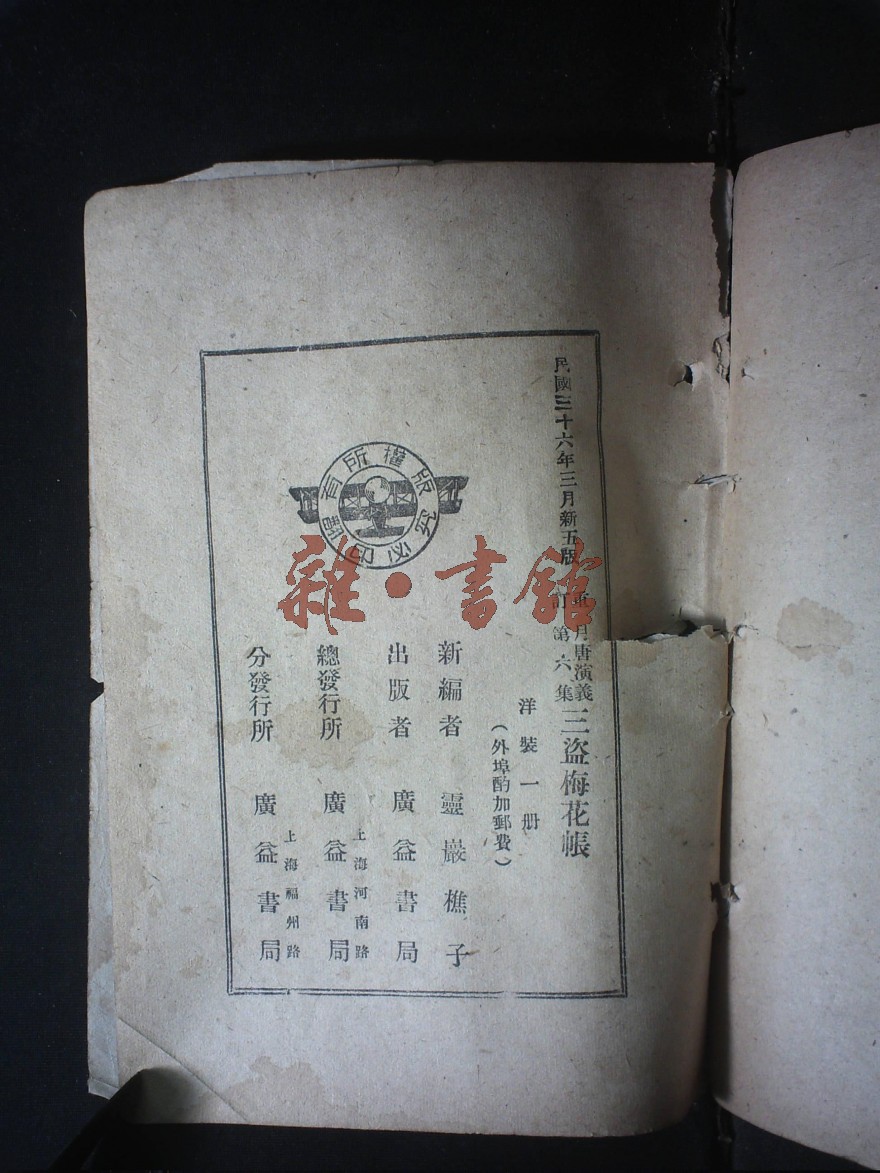 民國三十六年三月新五版
重訂 月唐演義第六集 三盜梅花帳
洋裝一册
(外埠酌加郵費)
新編者 靈巖樵子
出版者 廣益書局
總發行所 上海河南路 廣益書局
分發行所 上海福州路 廣益書局
版權所有
翻印必究
雜·書館